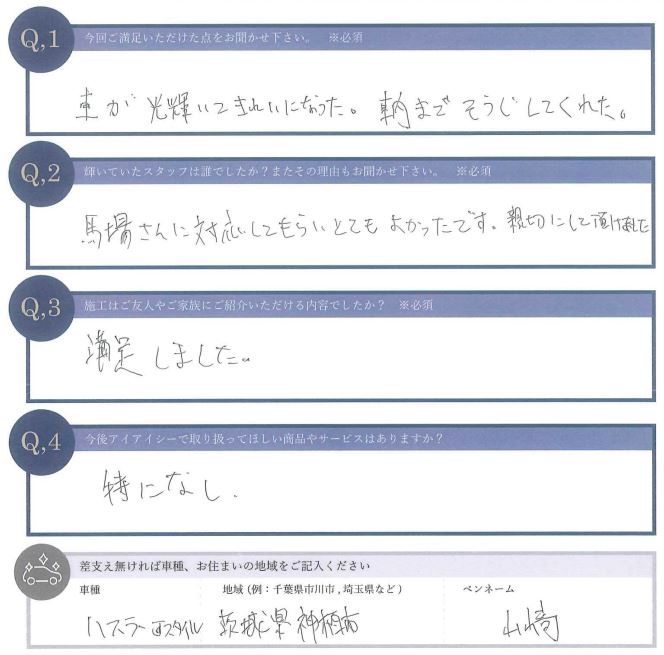 Q,1 今回ご満足いただけた点をお聞かせ下さい。 ※必須
車が光輝いてきれいになった。車内までそうじしてくれた。
Q,2 輝いていたスタッフは誰でしたか？またその理由もお聞かせ下さい。 ※必須
馬場さんに対応してもらいとてもよかったです。親切にして頂けました
Q,3 施工はご友人やご家族にご紹介いただける内容でしたか？ ※必須
満足しました。
Q,4 今後アイアイシーで取り扱ってほしい商品やサービスはありますか？
特になし.
差支え無ければ車種、お住まいの地域をご記入ください
車種 地域 (例：千葉県市川市 , 埼玉県など) ペンネーム
ハスラー Jスタイル 茨城県神栖市 山崎